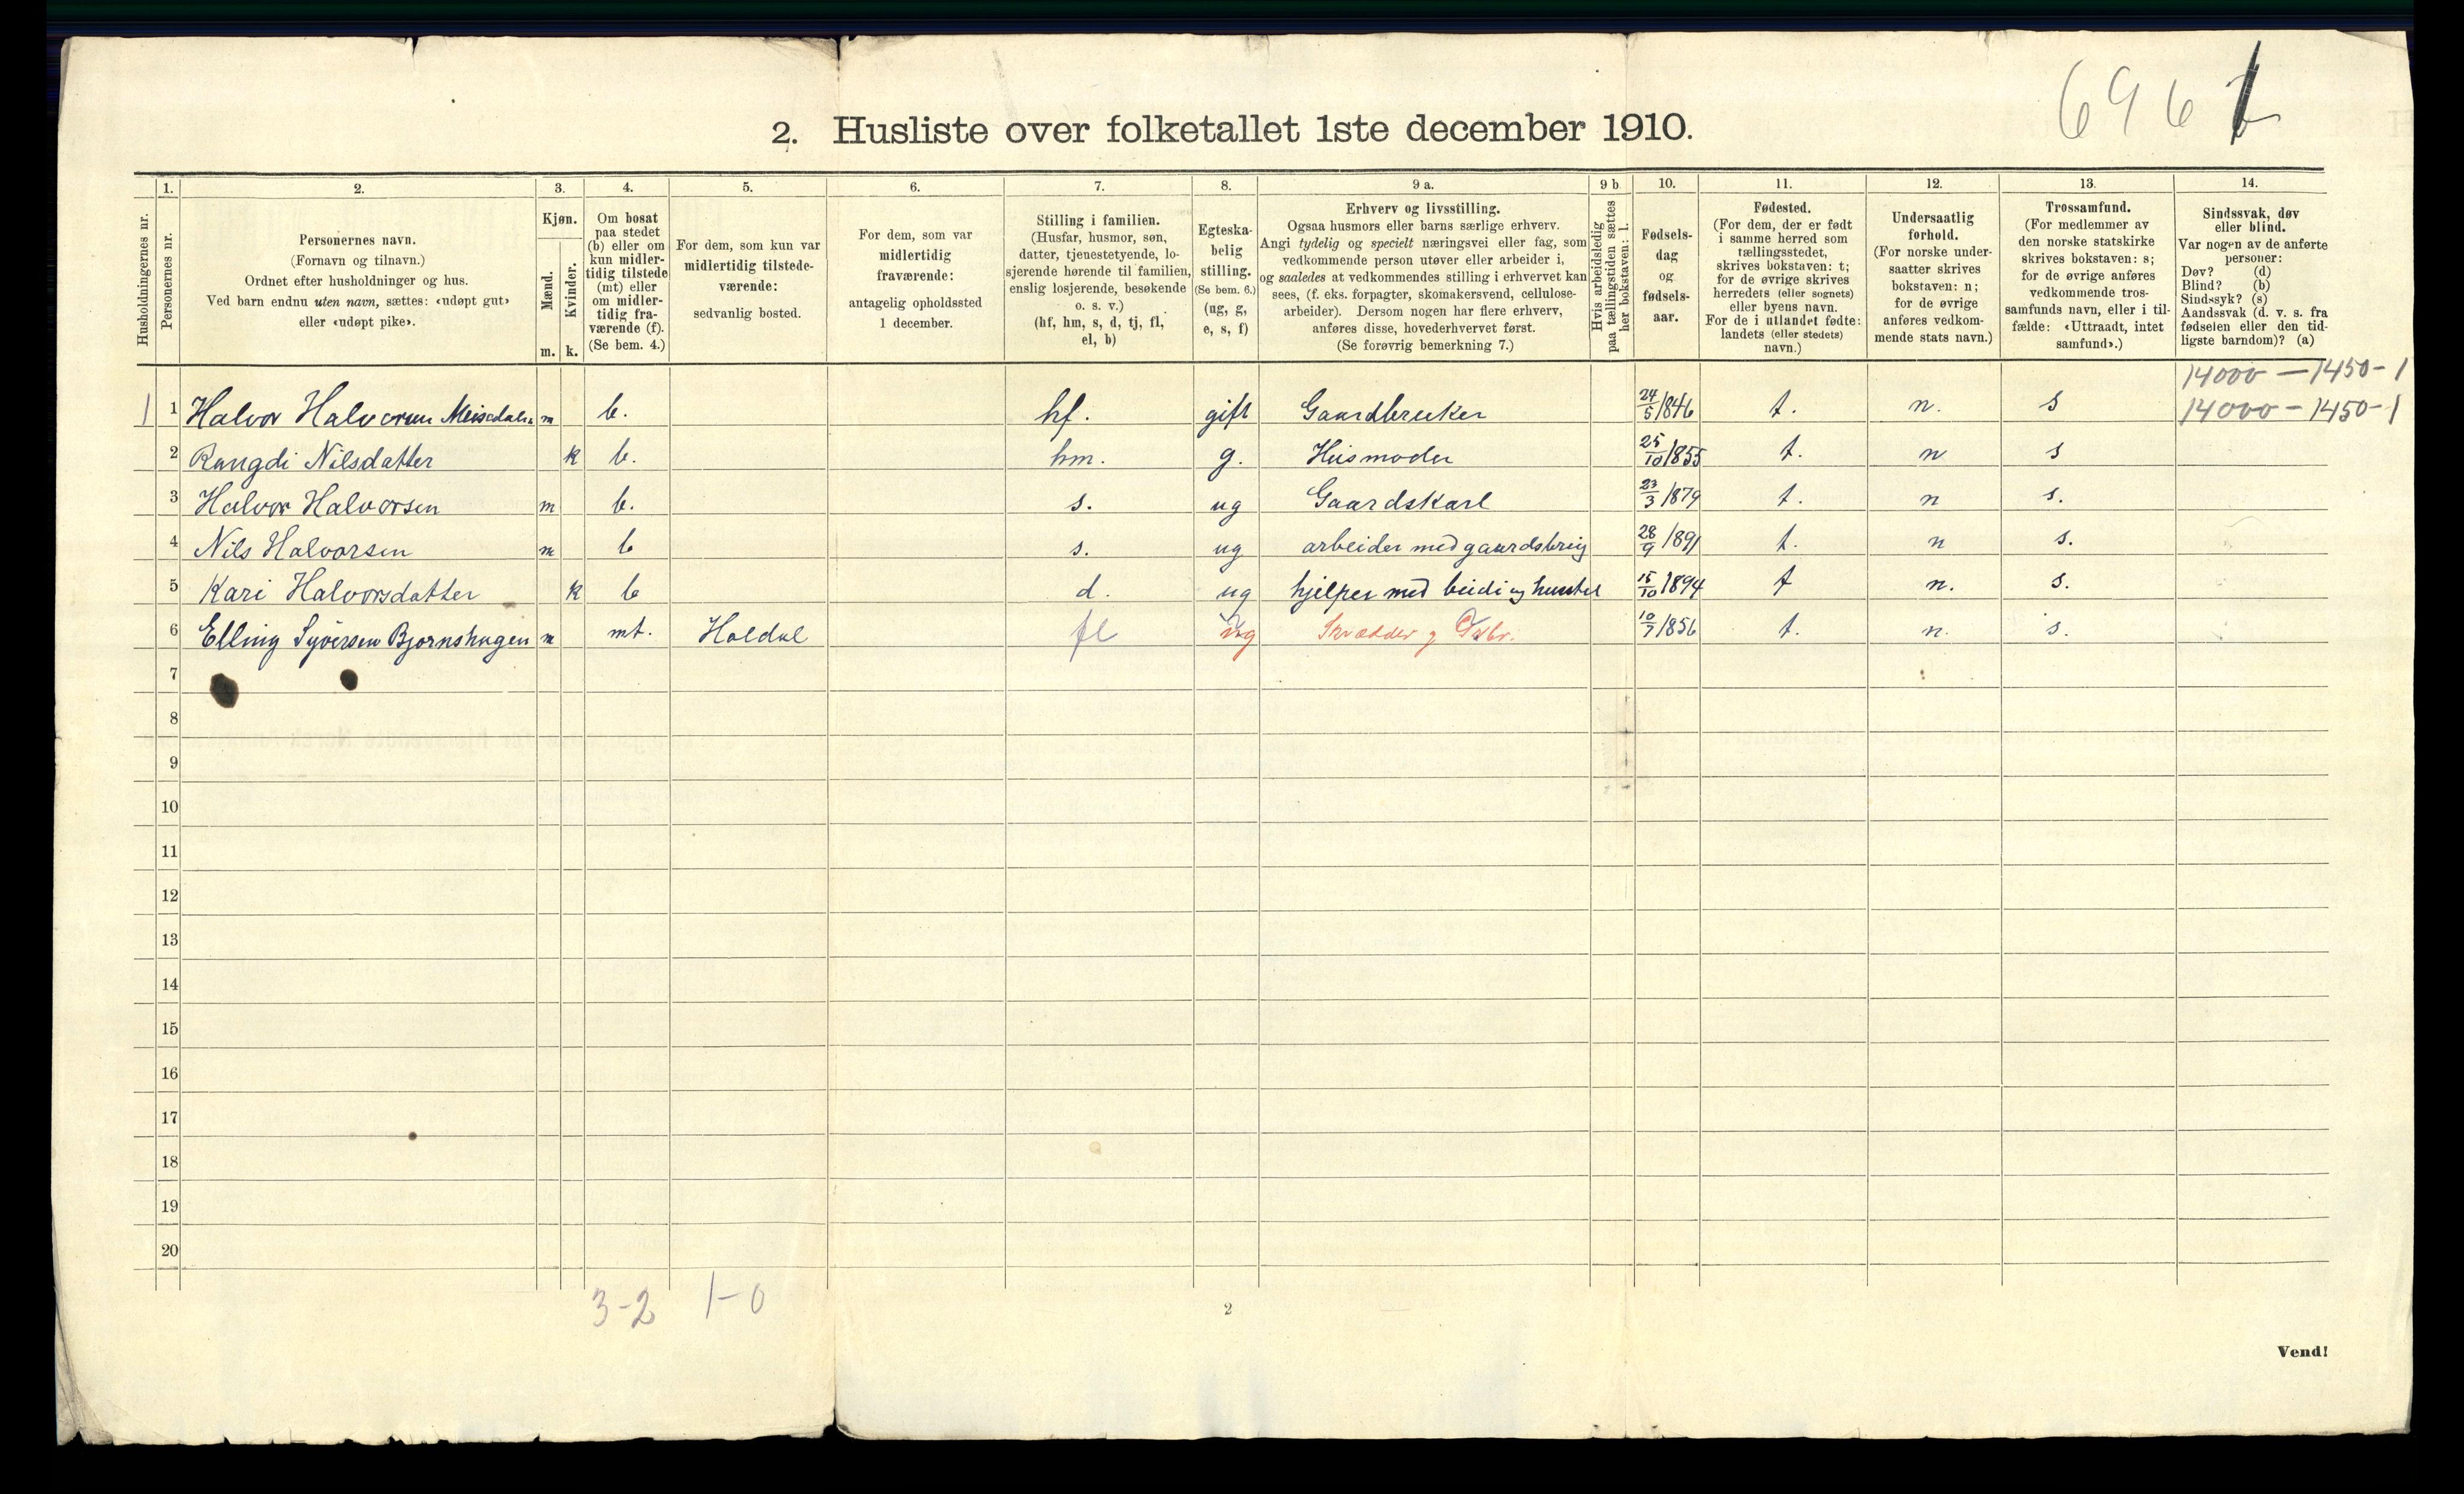 6961
2. Husliste over folketallet 1ste december 1910.
1. 2. 3. 4. 5. 6. 7. 8. 9 a. 9 b. 10. 11. 12. 13. 14.
Husholdningernes nr.
Personernes nr.
Personernes navn.
(Fornavn og tilnavn.)
Ordnet efter husholdninger og hus.
Ved barn endnu uten navn, sættes: «udøpt gut»
eller «udøpt pike».
Kjøn.
Mænd.
Kvinder.
m. k.
Om bosat
paa stedet
(b) eller om
kun midler-
tidig tilstede
(mt) eller
om midler-
tidig fra-
værende (f).
(Se bem. 4.)
For dem, som kun var
midlertidig tilstede-
værende:
sedvanlig bosted.
For dem, som var
midlertidig
fraværende:
antagelig opholdssted
1 december.
Stilling i familien.
(Husfar, husmor, søn,
datter, tjenestetyende, lo-
sjerende hørende til familien,
enslig losjerende, besøkende
o. s. v.)
(hf, hm, s, d, tj, fl,
el, b)
Egteska-
belig
stilling.
(Se bem. 6.)
(ug, g,
e, s, f)
Erhverv og livsstilling.
Ogsaa husmors eller barns særlige erhverv.
Angi tydelig og specielt næringsvei eller fag, som
vedkommende person utøver eller arbeider i,
og saaledes at vedkommendes stilling i erhvervet kan
sees, (f. eks. forpagter, skomakersvend, cellulose-
arbeider). Dersom nogen har flere erhverv,
anføres disse, hovederhvervet først.
(Se forøvrig bemerkning 7.)
Hvis arbeidsledig
paa tællingstiden sættes
her bokstaven: l.
Fødsels-
dag
og
fødsels-
aar.
Fødested.
(For dem, der er født
i samme herred som
tællingsstedet,
skrives bokstaven: t;
for de øvrige skrives
herredets (eller sognets)
eller byens navn.
For de i utlandet fødte:
landets (eller stedets)
navn.)
Undersaatlig
forhold.
(For norske under-
saatter skrives
bokstaven: n;
for de øvrige
anføres vedkom-
mende stats navn.)
Trossamfund.
(For medlemmer av
den norske statskirke
skrives bokstaven: s;
for de øvrige anføres
vedkommende tros-
samfunds navn, eller i til-
fælde: «Uttraadt, intet
samfund».)
Sindssvak, døv
eller blind.
Var nogen av de anførte
personer:
Døv? (d)
Blind? (b)
Sindssyk? (s)
Aandssvak (d. v. s. fra
fødselen eller den tid-
ligste barndom)? (a)
14000 — 1450 - 1
1 1 Halvor Halvorsen m b. hf. gift Gaardbruker 24/5 1846 t. n. s 14000 - 1450 - 1
2 Rangdi Nilsdatter k b. hm. g. Husmoder 25/10 1855 t. n s
3 Halvor Halvorsen m b. s. ug Gaardskarl 23/3 1879 t. n s.
4 Nils Halvorsen m b s. ug arbeider med gaardsbrug 28/9 1891 t. n s.
5 Kari Halvorsdatter k b d. ug hjelper med 15/10 1894 t n. s.
6 Elling Syversen Bjørnshagen m mt. Haldal fl ug Skrædder g Gdbr. 10/7 1856 t. n. s.
7
8
9
10
11
12
13
14
15
16
17
18
19
20
3-2 1-0
2
Vend!